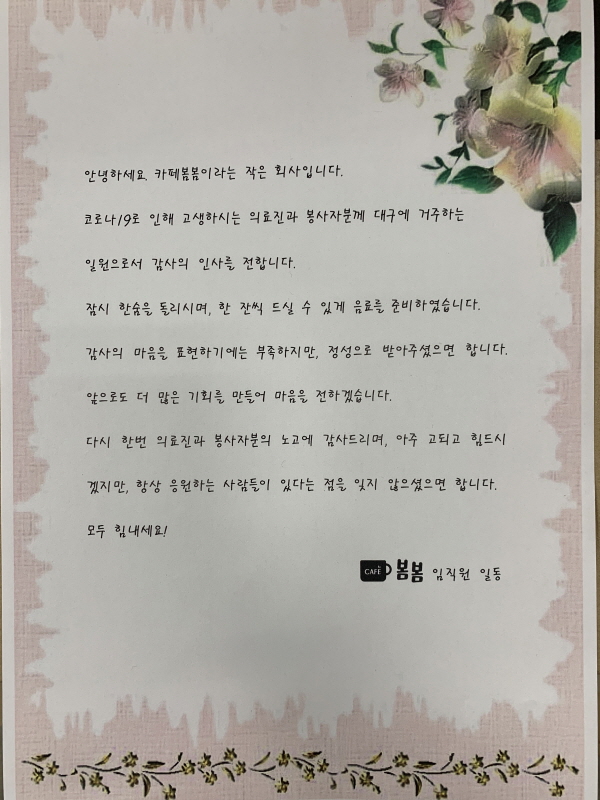 안녕하세요. 카페봄봄이라는 작은 회사입니다.
코로나19로 인해 고생하시는 의료진과 봉사자분께 대구에 거주하는
일원으로서 감사의 인사를 전합니다.
잠시 한숨을 돌리시며, 한 잔씩 드실 수 있게 음료를 준비하였습니다.
감사의 마음을 표현하기에는 부족하지만, 정성으로 받아주셨으면 합니다.
앞으로도 더 많은 기회를 만들어 마음을 전하겠습니다.
다시 한번 의료진과 봉사자분의 노고에 감사드리며, 아주 고되고 힘드시
겠지만, 항상 응원하는 사람들이 있다는 점을 잊지 않으셨으면 합니다.
모두 힘내세요!
CAFE 봄봄 임직원 일동